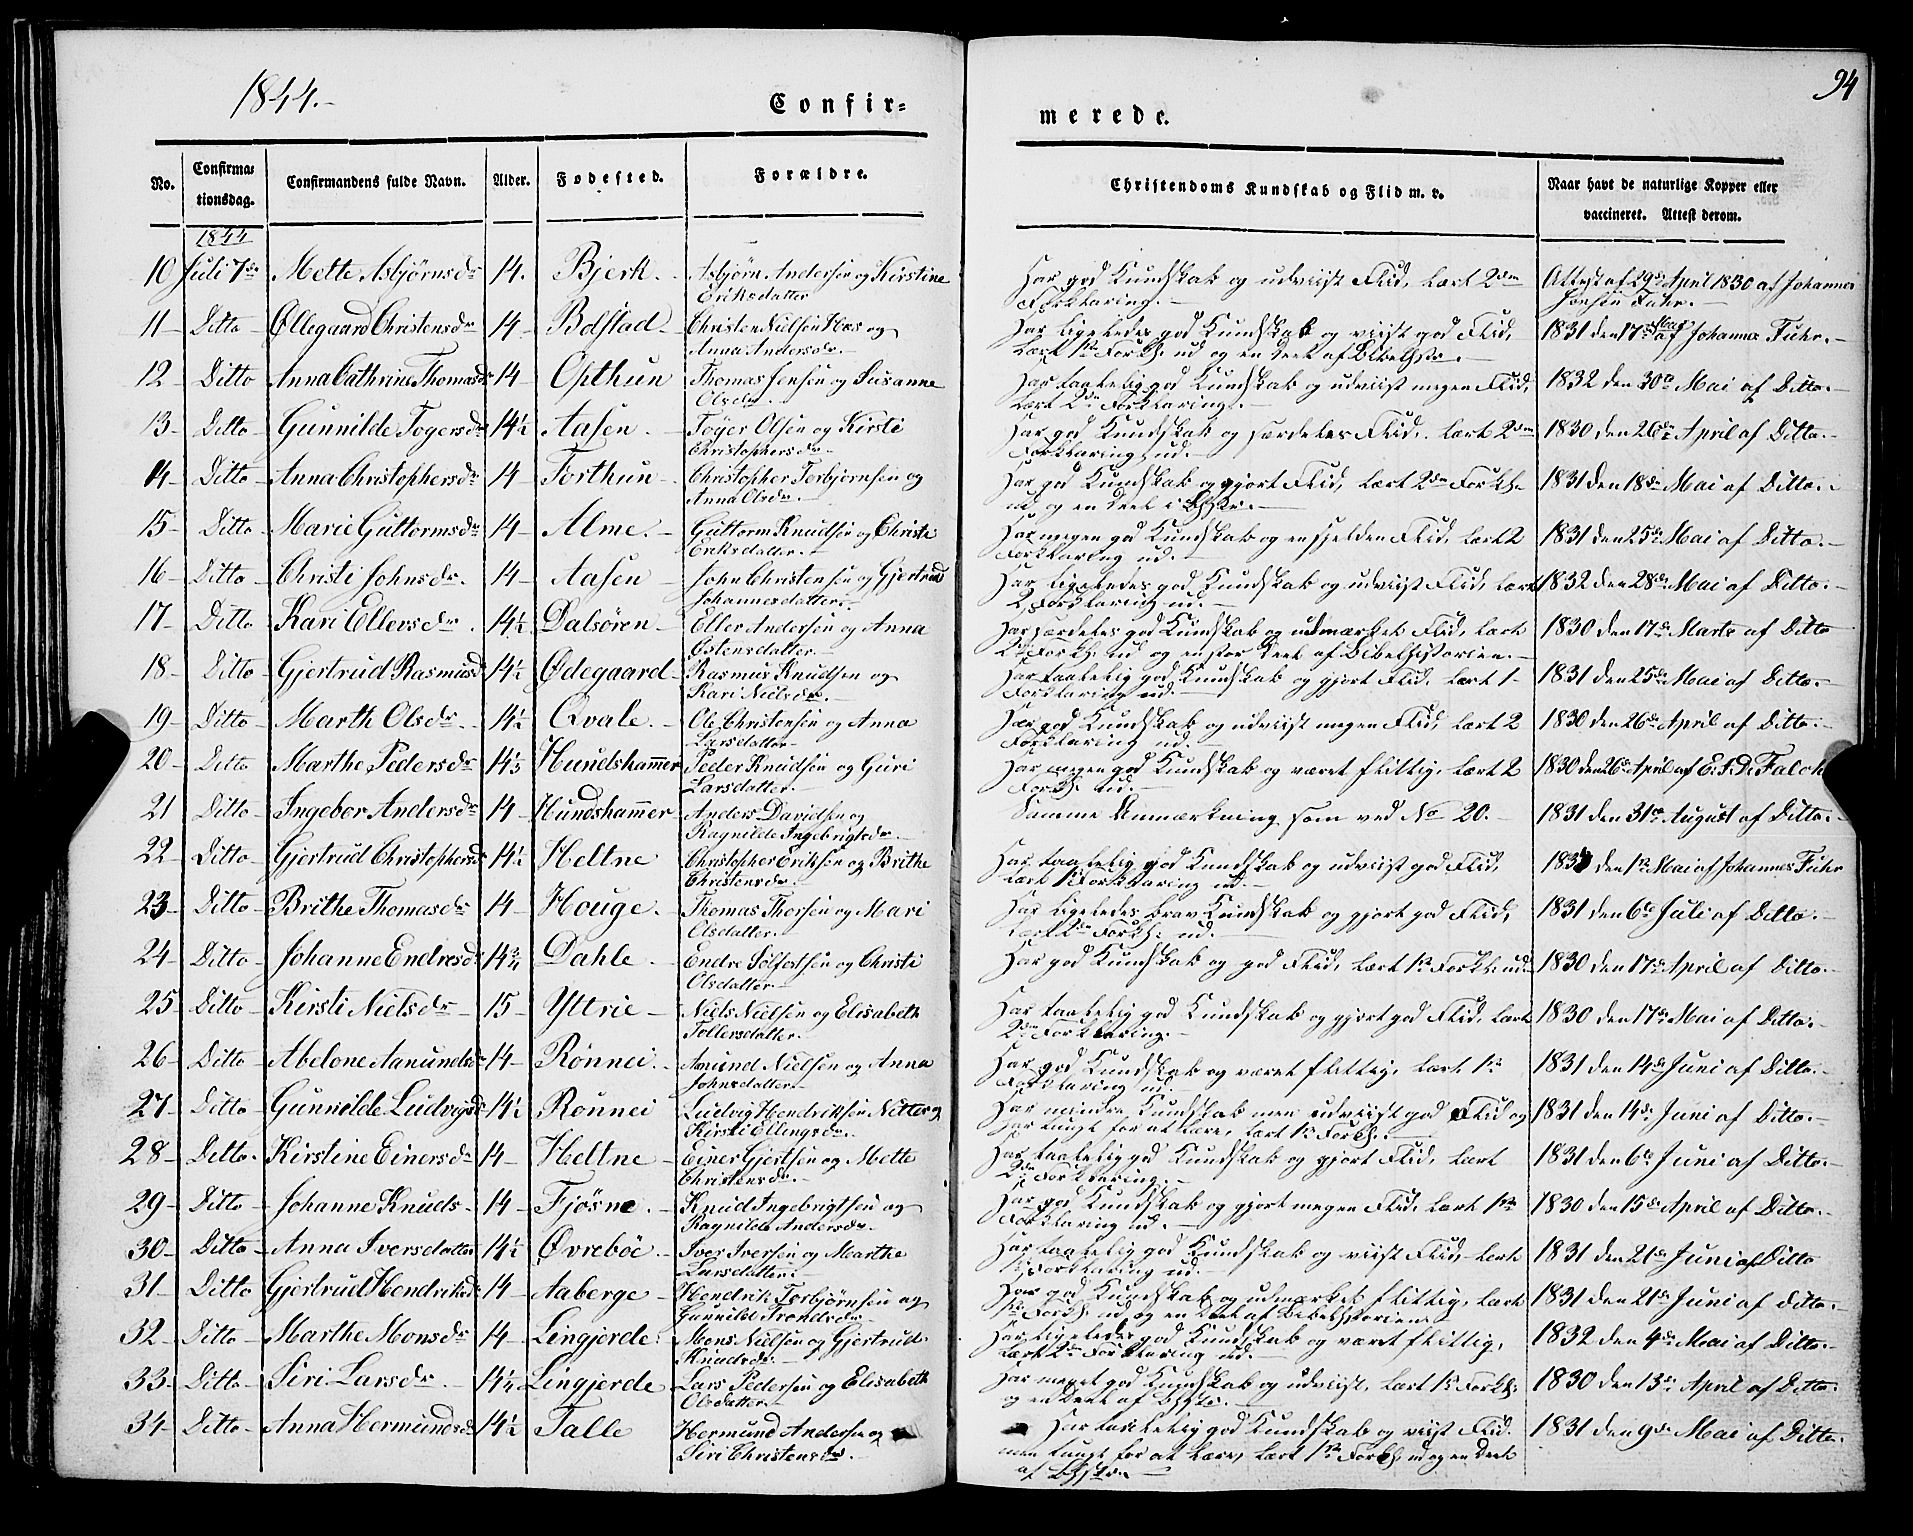 1844.-
Confir-
merede.
94
No.
Confirma-
tionsdag.
Confirmandens fulde Navn.
Alder.
Fødested.
Forældre.
Christendoms Kundskab og Flid m. v.
Naar havt de naturlige Kopper eller
vaccineret. Attest derom.
1844
10 Juli 7de Mette Asbjørnsdr 14. Bjerk. Asbjørn Andersen og Kirstine
Eriksdatter
Har god Kundskab og udviist Flid, lært 2den
Forklaring.
Attest af 29de April 1830 af Johannes
Jensen Fuhr.
11 Ditto Øllegaard Christensdr 14 Bolstad Christen Nielsen Hæs og
Anna Andersdr.
Har ligeledes god Kundskab og viist god Flid,
lært 1ste Forkl. ud og en Deel af Bibelhst.
1831 den 17de Mai af Johannes Fuhr.
12 Ditto Anna Cathrine Thomasdr 14 Opthun Thomas Jensen og Susanne
Olsdr.
Har taalelig god Kundskab og udviist megen Flid,
lært 2den Forklaring.
1832 den 30te Mai af Ditto.
13 Ditto Gunnilde Togersdr 14½ Aasen Toger Olsen og Kirsti
Christophersdr.
Har god Kundskab og særdeles Flid, lært 2den
Forklaring ud.
1830 den 26de April af Ditto.
14 Ditto Anna Christophersdr 14 Forthun Christopher Torbjørnsen og
Anna Olsdr.
Har god Kundskab og gjort Flid, lært 2den Forkl.
ud og en Deel i
1831 den 18de Mai af Ditto.
15 Ditto Marie Guttormsdr 14 Alme. Guttorm Knudsen og Christi
Eriksdatter.
Har megen god Kundskab og en sjelden Flid, lært 2
Forklaring ud.
1831 den 25de Mai af Ditto.
16 Ditto Christi Johnsdr. 14 Aasen John Christensen og Gjertrud
Johannesdatter.
Har ligeledes god Kundskab og udviist Flid, lært
2 Forklaring ud.
1832 den 28de Mai af Ditto.
17 Ditto Kari Ellersdr 14½ Dalsøren Eller Andersen og Anna
Ostensdatter.
Har særdeles god Kundskab og udmærket Flid, lært
2den Forkl. ud og en stor Deel af Bibelhistorien.
1830 den 17de Marts af Ditto
18 Ditto Gjertrud Rasmusdr 14½ Ødegaard Rasmus Knudsen og
Kari Nielsdr.
Har taalelig god Kundskab og gjort Flid, lært 1
Forklaring ud.
1831 den 25de Mai af Ditto.
19 Ditto Marth Olsdr 14½ Qvale. Ole Christensen og Anna
Larsdatter
Har god Kundskab og udviist megen Flid, lært 2
Forklaring ud.
1830 den 26de April af Ditto.
20 Ditto Marthe Pedersdr Hundshammer Peder Knudsen og Guri
Larsdatter.
Har megen god Kundskab og været flittig, lært 2
Forkl. ud.
1830 den 26de April af E. S. D. Falch
21 Ditto Ingebor Andersdr 14 Hundshammer Anders Davidsen og
Ragnilde Ingebrigtsdr.
Samme Anmærkning som ved No 20.
1831 den 31te August af Ditto.
22 Ditto Gjertrud Christophersdr 14½ Heltne Christopher Eriksen og Brithe
Christensdr.
Har taalelig god Kundskab og udviist god Flid,
lært 1ste Forklaring ud.
den 1ste Mai af Johannes Fuhr
23 Ditto Brithe Thomasdr 14 Houge. Thomas Thorsen og Mari
Olsdatter.
Har ligeledes brav Kundskab og gjort god Flid,
lært 2den Forkl. ud.
1831 den 6te Juli af Ditto.
24 Ditto Johanne Endresdr 14¾ Dahle Endre Solfestsen og Christi
Olsdatter.
Har god Kundskab og god Flid, lært 1ste Forkl. ud
1830 den 17de April af Ditto.
25 Ditto Kirsti Nielsdr 15 Yttrie Niels Nielsen og Elisabeth
Tollersdatter.
Har taalelig god Kundskab og gjort god Flid, lært
2den Forklaring.
1830 den 17de Mai af Ditto.
26 Ditto Abelone Aanundsdr 14 Rønnei. Anund Nielsen og Anna
Johnsdatter.
Har god Kundskab og været flittig, lært 1ste
Forklaring ud.
1831 den 14de Juni af Ditto.
27 Ditto Gunnilde Ludvigsdr 14½ Rønnei Ludvig Hendriksen Nitter og
Kirsti Ellingsdr.
Har mindre Kundskab men udviist god Flid og
har tungt for at lære, lært 1ste Forkl.
1831 den 14de Juni af Ditto.
28 Ditto. Kirstine Einersdr 14 Heltne Einer Gjertsen og Mette
Christensdr.
Har taalelig god Kundskab og gjort Flid, lært
2den Forklaring.
1831 den 6te Juni af Ditto.
29 Ditto Johanne Knuds 14 Fjøsne. Knud Ingebrigtsen og
Ragnilde Andersdr.
Har god Kundskab og gjort megen Flid, lært 1ste
Forklaring ud.
1830 den 15de April af Ditto.
30 Ditto Anna Iversdatter 14½ Øvrebøe Iver Iversen og Marthe
Larsdatter.
Har taalelig god Kundskab og viist Flid, lært
1 Forklaring ud.
1831 den 21de Juni af Ditto
31 Ditto Gjertrud Hendriksdr 14 Aaberge Hendrik Torbjørnsen og
Gunnild Trondsdr.
Har god Kundskab og udmærket flittig, lært
1ste Forkl. ud og en Deel af Bibelhistorien.
1831 den 21de Juni af ditto.
32 Ditto Marthe Monsdr 14 Lingjerde. Mons Nielsen og Gjertrud
Knudsdr.
Har ligeledes god Kundskab og været flittig,
lært 2den Forklaring ud.
1832 den 4de Mai af Ditto.
33 Ditto Siri Larsdr 14¼ Lingjerde Lars Pedersen og Elisabeth
Olsdatter.
Har meget god Kundskab og udviist, lært 1ste Forkl.
og en Deel af
1830 den 13de April af Ditto.
34 Ditto Anna Hermundsdr 14½ Talle Hermund Andersen og
Siri Christensdr.
Har taalelig god Kundskab og viist Flid
men tungt for at lære, lært 1ste Forkl. ud og en Deel
af
1831 den 9de Mai af Ditto.